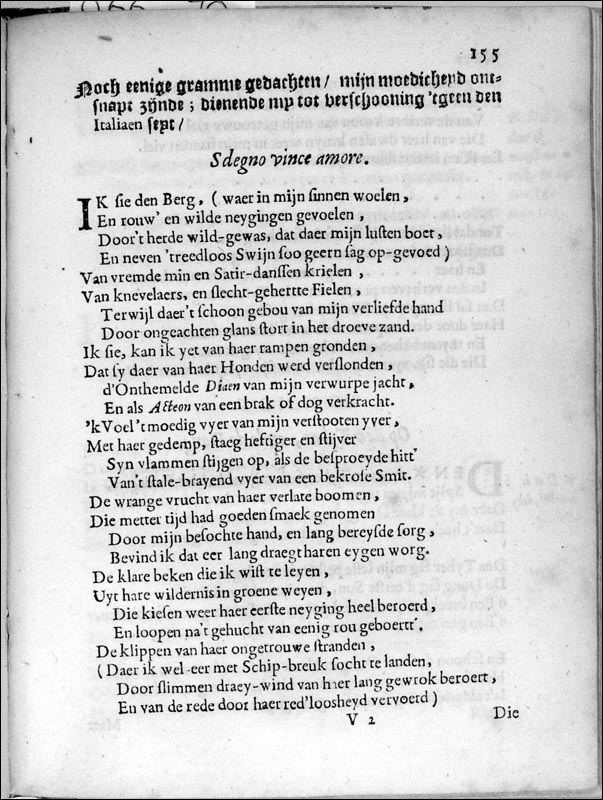 155
Noch eenige gramme gedachten / mijn moedicheyd ont-
snapt zijnde ; dienende my tot verschooning 'tgeen den
Italiaen seyt /
Sdegno vince amore.
IK sie den Berg, ( waer in mijn sinnen woelen,
En rouw' en wilde neygingen gevoelen,
Door't herde wild-gewas, dat daer mijn lusten boet,
En neven 'treedloos Swijn soo geern sag op-gevoed )
Van vremde min en Satir-danssen krielen,
Van knevelaers, en slecht-gehertte Fielen,
Terwijl daer't schoon gebou van mijn verliefde hand
Door ongeachten glans stort in het droeve zand.
Ik sie, kan ik yet van haer rampen gronden,
Dat sy daer van haer Honden werd verslonden,
d'Onthemelde Diaen van mijn verwurpe jacht,
En als Acteon van een brak of dog verkracht.
'kVoel't moedig vyer van mijn verstooten yver,
Met haer gedemp, staeg heftiger en stijver
Syn vlammen stijgen op, als de besproeyde hitt'
Van't stale-brayend vyer van een bekrose Smit.
De wrange vrucht van haer verlate boomen,
Die metter tijd had goeden smaek genomen
Door mijn besochte hand, en lang bereysde sorg,
Bevind ik dat eer lang draegt haren eygen worg.
De klare beken die ik wist te leyen,
Uyt hare wildernis in groene weyen,
Die kiesen weer haer eerste neyging heel beroerd,
En loopen na't gehucht van eenig rou geboert'.
De klippen van haer ongetrouwe stranden,
( Daer ik wel eer met Schip-breuk socht te landen,
Door slimmen draey-wind van haer lang gewrok beroert,
En van de rede door haer red'loosheyd vervoerd )
V 2
Die